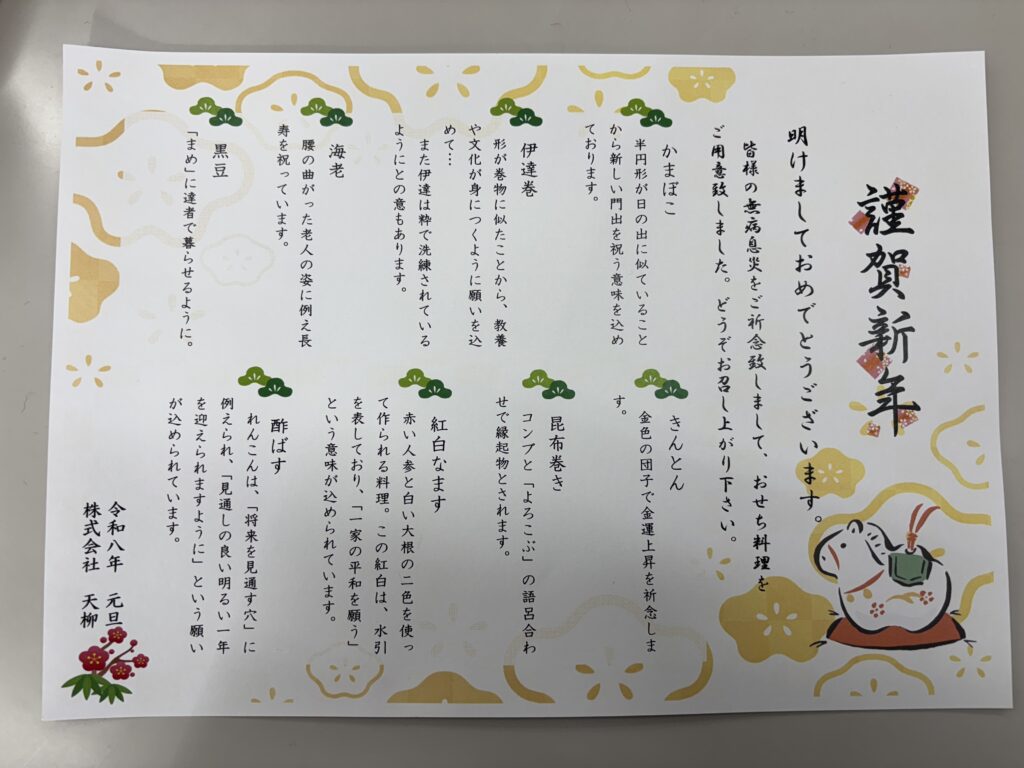 謹賀新年
明けましておめでとうございます。
皆様の無病息災をご祈念致しまして、おせち料理を
ご用意致しました。どうぞお召し上がり下さい。
かまぼこ
半円形が日の出に似ていること
から新しい門出を祝う意味を込め
ております。
伊達巻
形が巻物に似たことから、教養
や文化が身につくように願いを込
めて…
また伊達は粋で洗練されている
ようにとの意もあります。
海老
腰の曲がった老人の姿に例え長
寿を祝っています。
黒豆
「まめ」に達者で暮らせるように。
きんとん
金色の団子で金運上昇を祈念しま
す。
昆布巻き
コンブと「よろこぶ」の語呂合わ
せで縁起物とされます。
紅白なます
赤い人参と白い大根の二色を使っ
て作られる料理。この紅白は、水引
を表しており、「一家の平和を願う」
という意味が込められています。
酢ばす
れんこんは、「将来を見通す穴」に
例えられ、「見通しの良い明るい一年
を迎えられますように」という願い
が込められています。
令和八年 元旦
株式会社 天柳